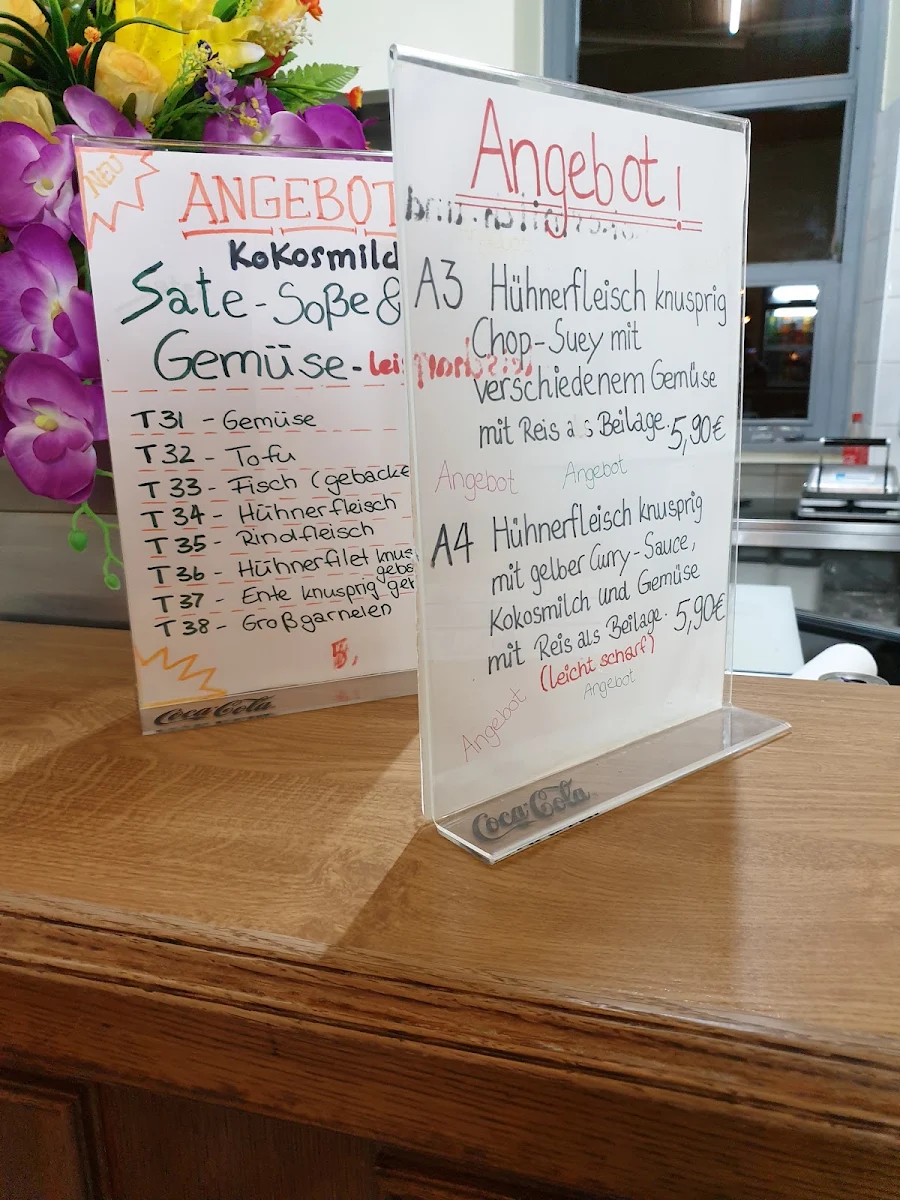 NEU
ANGEBOT
Kokosmilc
Sate-Soße &
Gemüse-lei
T31 - Gemüse
T32 - Tofu
T33 - Fisch (gebacke
T34 - Hühnerfleisch
T35 - Rindfleisch
T36 - Hühnerfilet knus
geb
T37 - Ente knusprig ge
T38 - Großgarnelen
Coca-Cola
Angebot!
A3 Hühnerfleisch knusprig
Chop-Suey mit
verschiedenem Gemüse
mit Reis als Beilage. 5,90€
Angebot Angebot
A4 Hühnerfleisch knusprig
mit gelber Curry-Sauce,
Kokosmilch und Gemüse
mit Reis als Beilage. 5,90€
(leicht scharf)
Angebot Angebot
Coca-Cola